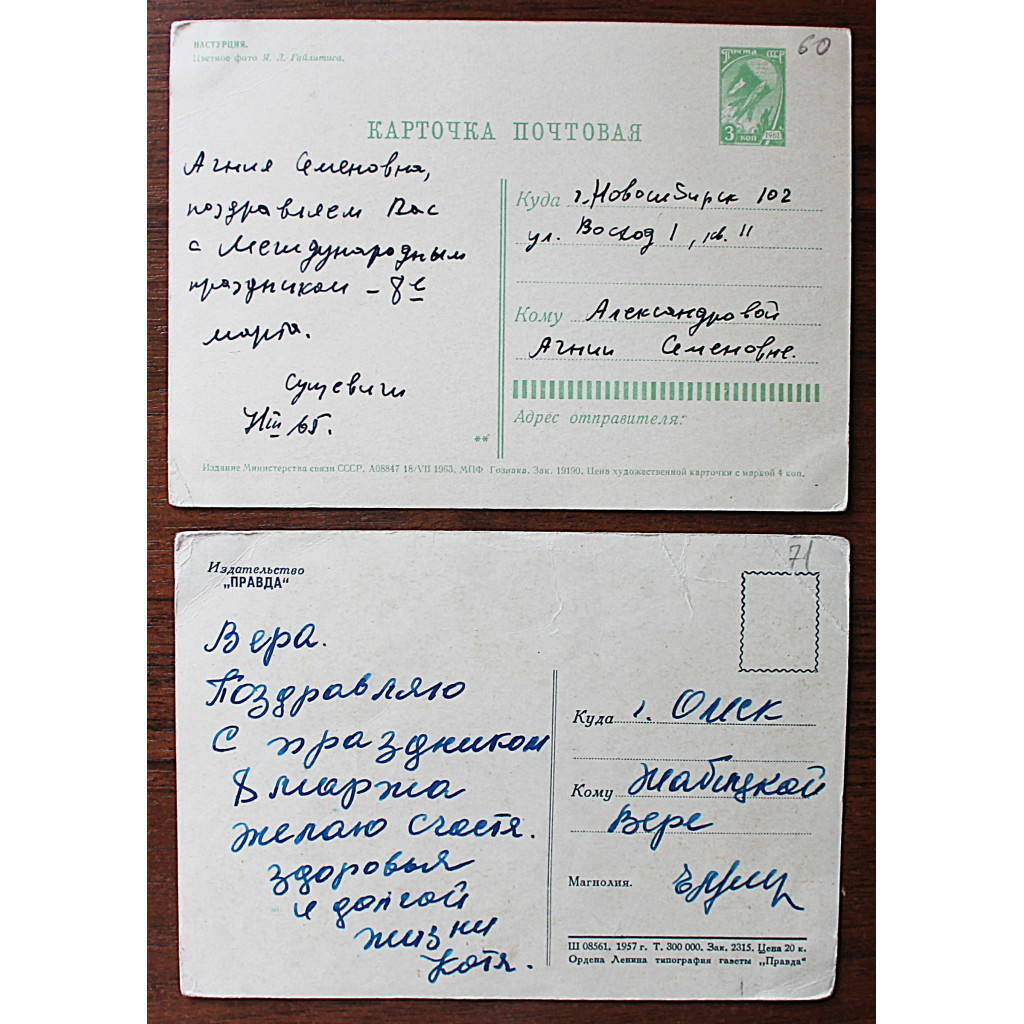 НАСТУРЦИЯ.
Цветное фото Я. Л. Гайлитиса.
60
Почта СССР
3 коп
1961
КАРТОЧКА ПОЧТОВАЯ
Агния Семеновна,
поздравляем Вас
с Международным
праздником – 8е
марта.
Сушевичи
Куда г. Новосибирск 102
ул. Восход 1, кв. 11
Кому Александровой
Агнии Семеновне.
Адрес отправителя:
**
Издание Министерства связи СССР. А08847 18/VII 1963. МПФ Гознака. Зак. 19190. Цена художественной карточки с маркой 4 коп.
Издательство
„ПРАВДА“
71
Вера.
Поздравляю
с праздником
8 марта
желаю счастя.
здоровья
и долгой
жизни
Котя.
Куда г. Омск
Кому Жабицкой
Вере
Магнолия.
Ш 08561. 1957 г. Т. 300 000. Зак. 2315. Цена 20 к.
Ордена Ленина типография газеты „Правда“